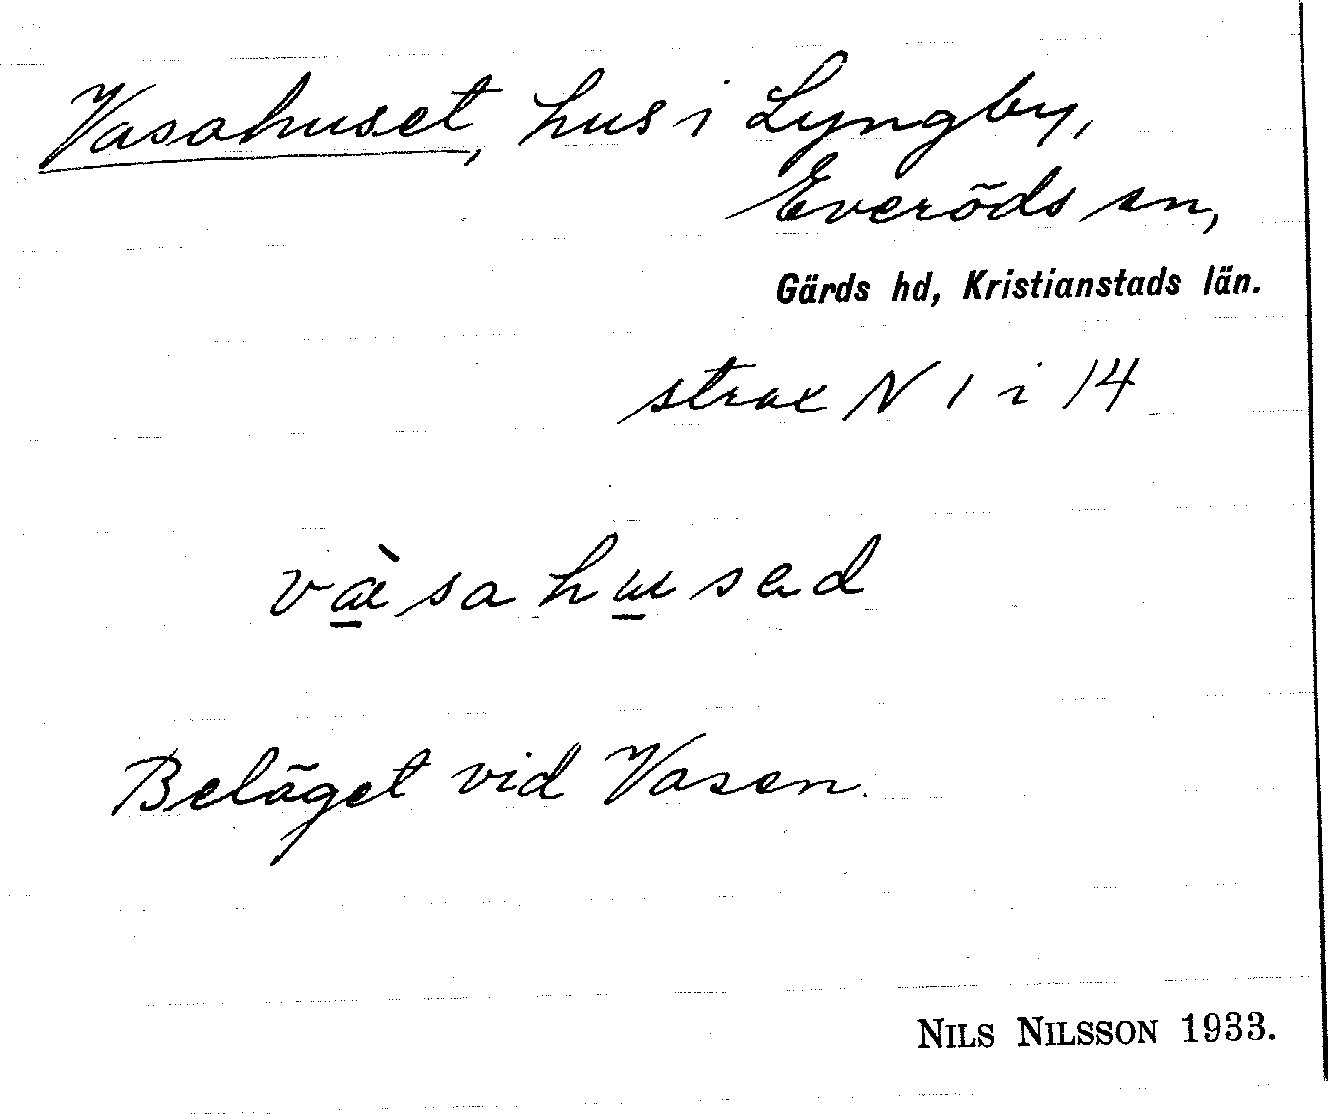 Vasahuset, hus i Lyngby,
Everöds sn,
Gärds hd, Kristianstads län.
strax N 1 i 14
væ̠̀sahu̠sed
Beläget vid Vasen.
NILS NILSSON 1933.